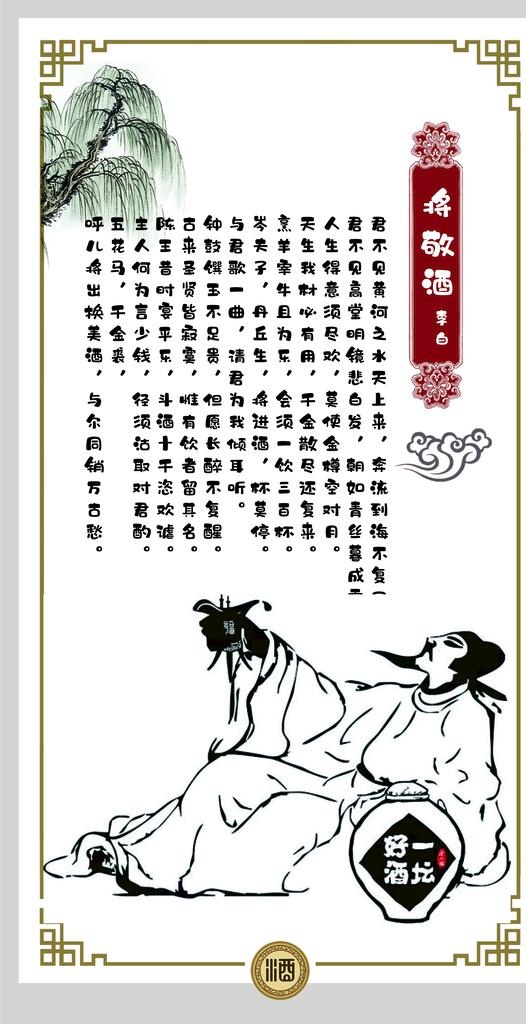 将敬酒
李白
君不见黄河之水天上来，奔流到海不复
君不见高堂明镜悲白发，朝如青丝暮成
人生得意须尽欢，莫使金樽空对月。
天生我材必有用，千金散尽还复来。
烹羊宰牛且为乐，会须一饮三百杯。
岑夫子，丹丘生，将进酒，杯莫停。
与君歌一曲，请君为我倾耳听。
钟鼓馔玉不足贵，但愿长醉不复醒。
古来圣贤皆寂寞，惟有饮者留其名。
陈王昔时宴平乐，斗酒十千恣欢谑。
主人何为言少钱，径须沽取对君酌。
五花马，千金裘，
呼儿将出换美酒，与尔同销万古愁。
一坛
好酒
酒